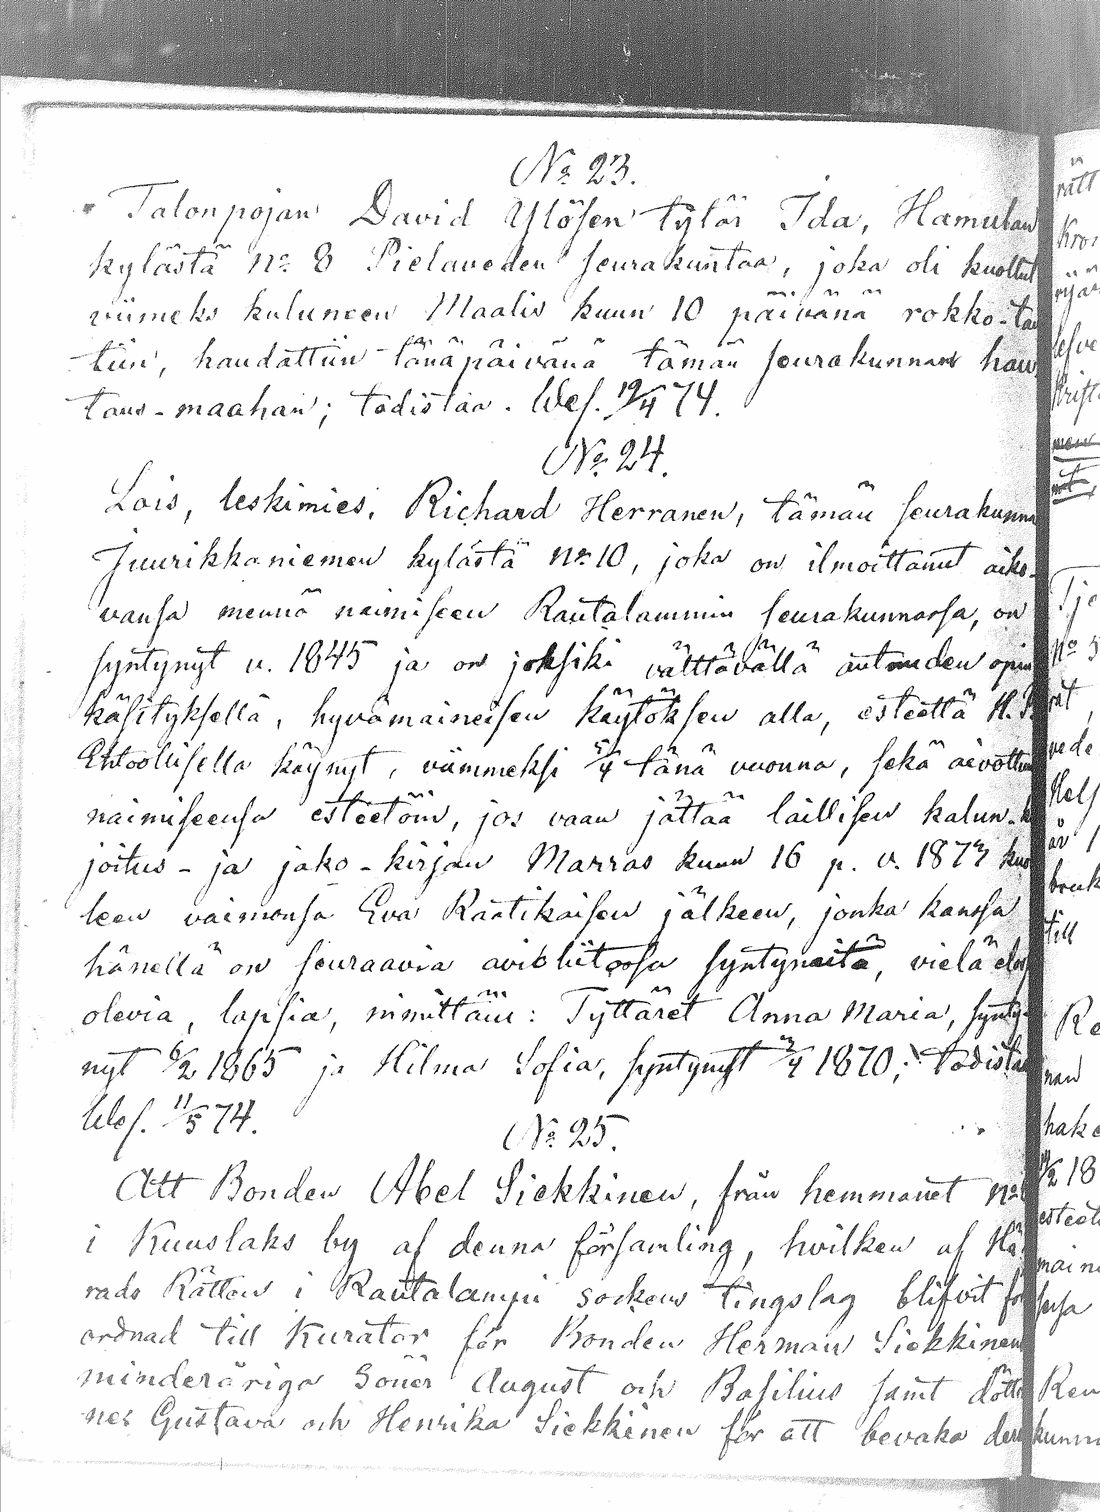 No 23.
Talonpojan David Ylösen tytär Ida, Hamulan
kylästä No 8 Pielaveden seurakuntaa, joka oli kuollut
viimeks kuluneen Maalis kuun 10 päivänä rokko-tau
tiin, haudattiin tänäpäivänä tämän seurakunnan hau
taus-maahan; todistaa. Wes. 19/4 74.
No 24.
Lois, leskimies, Richard Herranen, tämän seurakunna
Juurikkaniemen kylästä No 10, joka on ilmoittanut aiko-
vansa mennä naimiseen Rautalammin seurakunnassa, on
syntynyt v. 1845 ja on joksiki välttävällä autuuden opin
käsityksellä, hyvämaineisen käytöksen alla, esteettä H. P.
Ehtoollisella käynyt, viimmeksi 5/4 tänä vuonna, sekä aivottuu
naimiseensa esteetöin, jos vaan jättää laillisen kalun-k
joitus- ja jako-kirjan Marras kuun 16 p. v. 1873 kuo
leen vaimonsa Eva Räätikäisen jälkeen, jonka kanssa
hänellä on seuraavia avioliitossa syntyneitä, vielä elos
olevia, lapsia, nimittäin: Tyttäret Anna Maria, synty-
nyt 6/2 1865 ja Hilma Sofia, syntynyt 2/4 1870; todistaa
Wes. 11/5 74.
No 25.
Att Bonden Abel Siekkinen, från hemmanet No
i Kuuslaks by af denna församling, hvilken af Hä
rads Rätten i Rautalampi sockens tingslag blifvit för
ordnad till Kurator för Bonden Herman Siekkinens
minderåriga Söner August och Basilius samt döttr
nes Gustava och Henrika Siekkinen för att bevaka deras